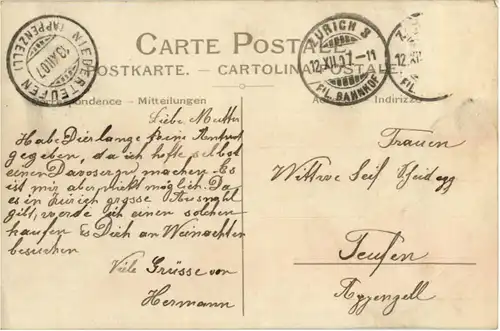 CARTE POSTALE
POSTKARTE. – CARTOLINA POSTALE.
NIEDERTEUFEN
13.XII.07
(APPENZELL)
ZÜRICH 3
12.XII.07.-11
FIL. BAHNHOF
12.XII
FIL.
Correspondence - Mitteilungen
Indirizzo
Liebe Mutter
Habe Dier lange keine Antwort
gegeben, da ich hofte selbst
einen Davoser zu machen. Es
ist mir aber nicht möglich. Da
es in Zürich grosse Auswahl
gibt, werde ich einen solchen
kaufen Es Dich an Weinachten
besuchen
Viele Grüsse von
Hermann
Frauen
Wittwe Seif Scheidegg
Teufen
Appenzell